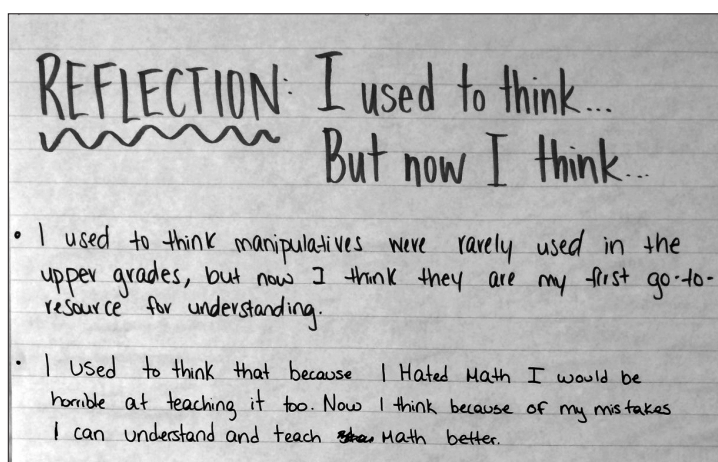 REFLECTION: I used to think...
But now I think...
• I used to think manipulatives were rarely used in the
upper grades, but now I think they are my first go-to-
resource for understanding.
• I used to think that because I Hated Math I would be
horrible at teaching it too. Now I think because of my mistakes
I can understand and teach Math better.